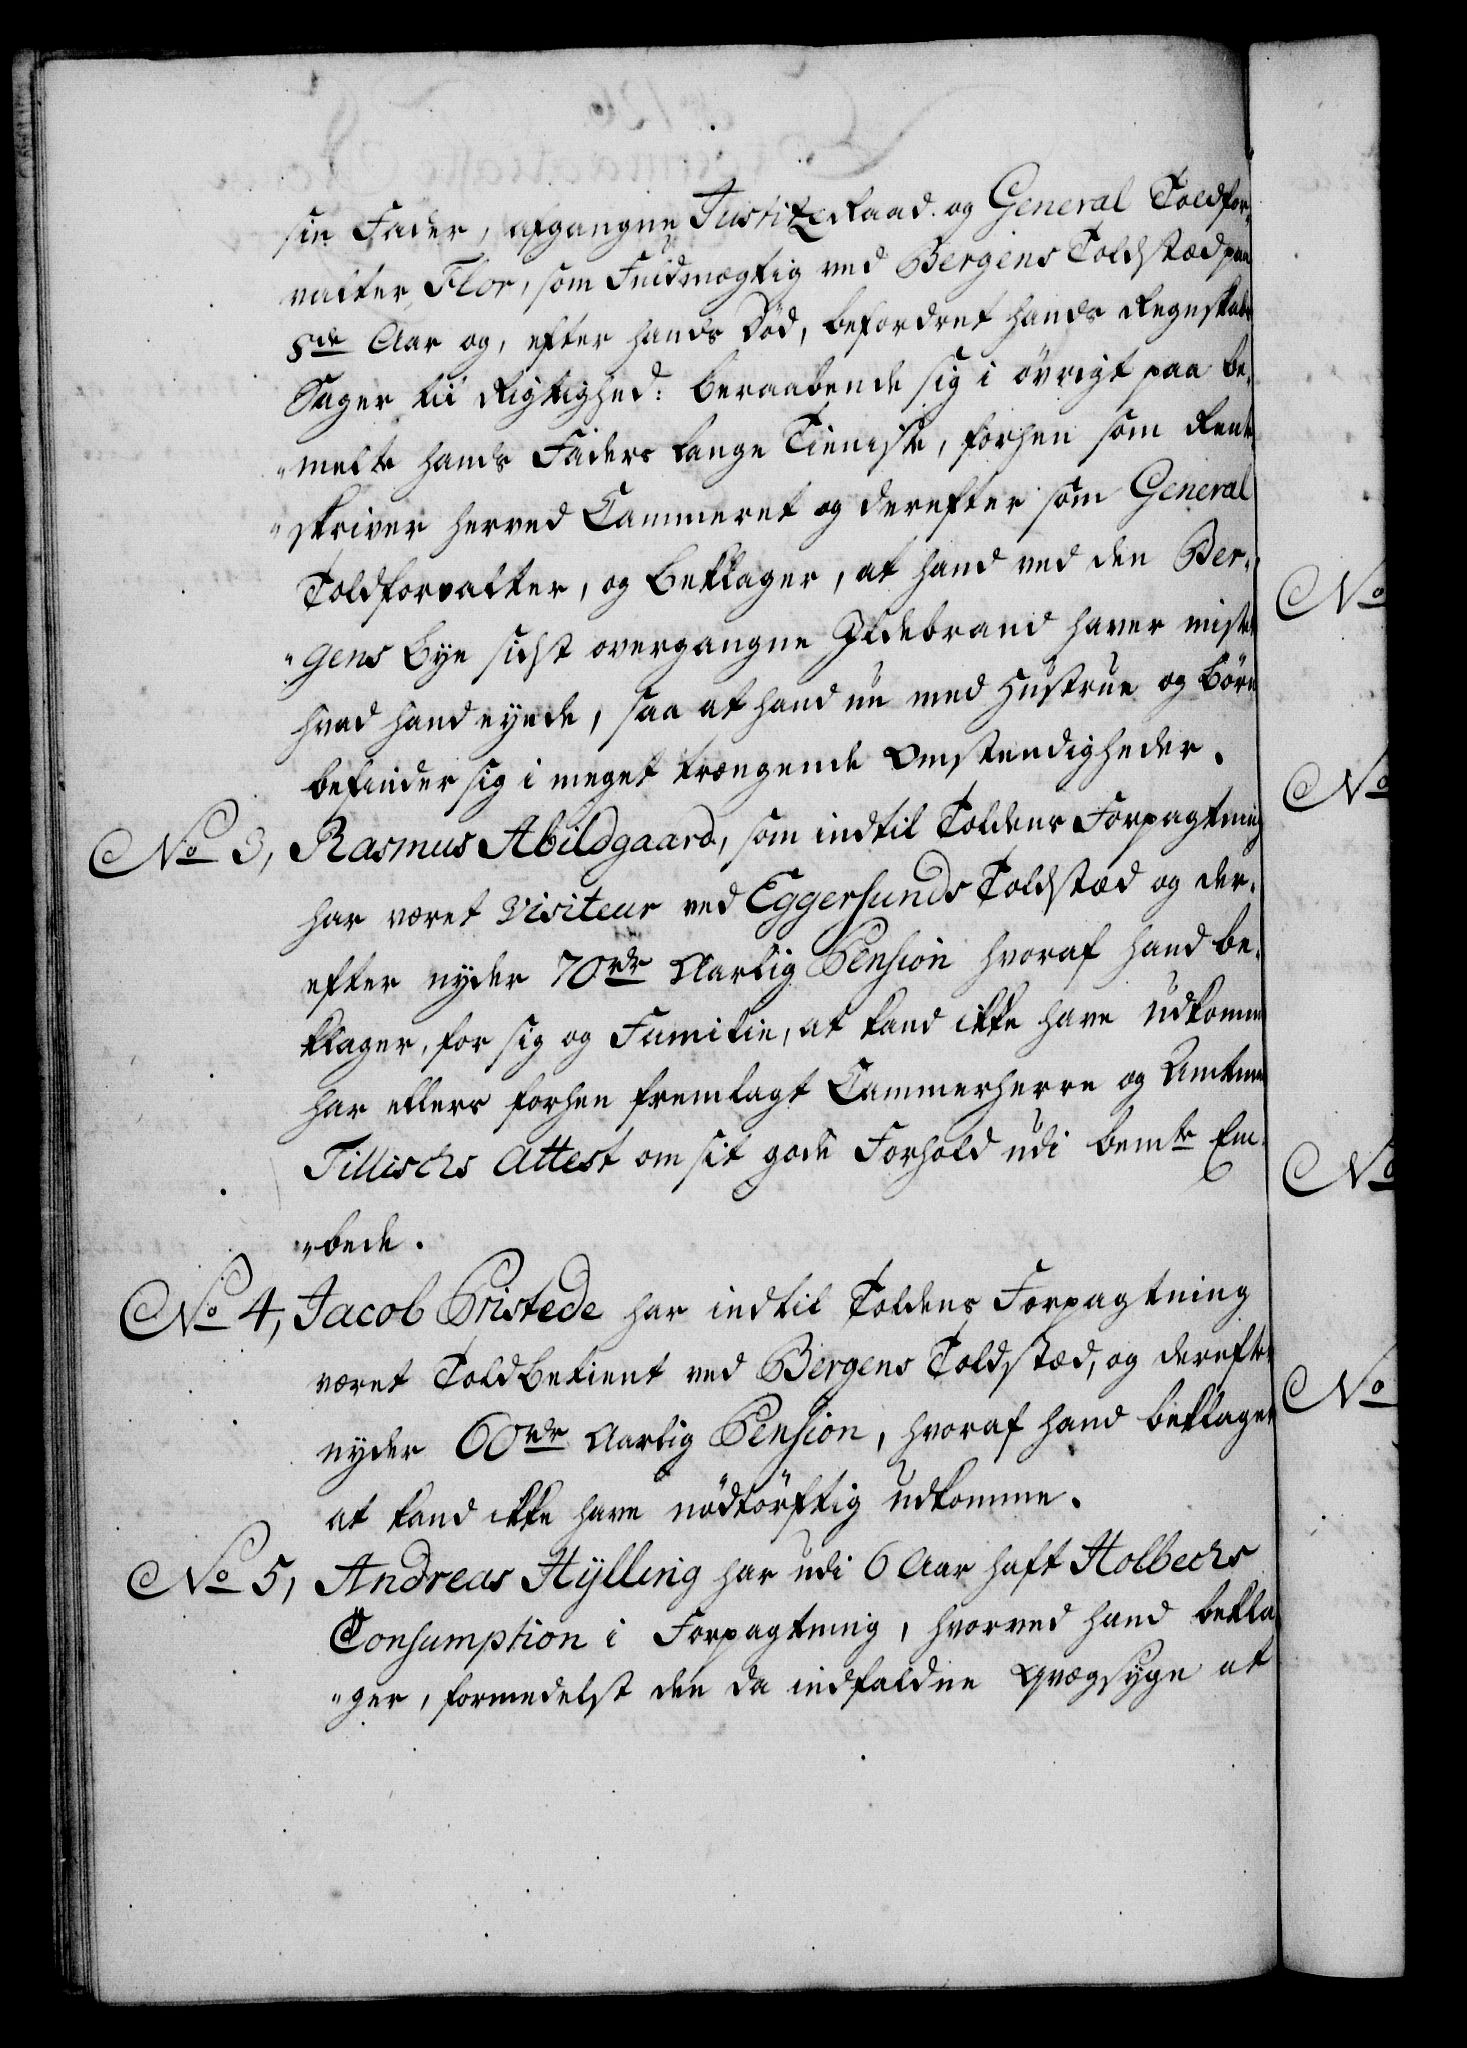 sin Fader, afgangne Justitzraad. og General Toldfor-
valter Flor, som Fuldmægtig ved Bergens Toldstæd paa
8de Aar og, efter hands Død, befordret hands Regnskabs
Sager til Rigtighed: beraabende sig i övrigt paa be-
"melte hands Faders lange Tieniste, forhen som Rente
"skriver herved Cammeret og derefter som General
Toldforvalter, og beklager, at hand ved den Ber-
"gens Bye sidst overgangne Ildebrand haver mistet
hvad hand eyede, saa at hand nu med Hustrue og Börn
befinder sig i meget trængende Omstendigheder.
No 3, Rasmus Abildgaard, som indtil Toldens Forpagtning
har været Visiteur ved Eggersunds Toldstæd og der-
efter nyder 70rdr Aarlig Pension hvoraf hand be-
klager, for sig og Familie, at kand ikke have Udkomme
har ellers forhen fremlagt Cammerherre og Amtmand
Tillischs Attest om sit gode Forhold udi bemte Em-
"bede.
No 4, Jacob Pristede har indtil Toldens Forpagtning
været Toldbetient ved Bergens Toldstæd, og derefter
nyder 60rdr Aarlig Pension, hvoraf hand beklager
at kand ikke have nödtörftig udkomme.
No 5, Andreas Hylling har udi 6 Aar haft Holbechs
Consumption i Forpagtning, hvorved hand bekla-
"ger, formedelst den da indfaldne Qvægsyge at
No
No
No
No